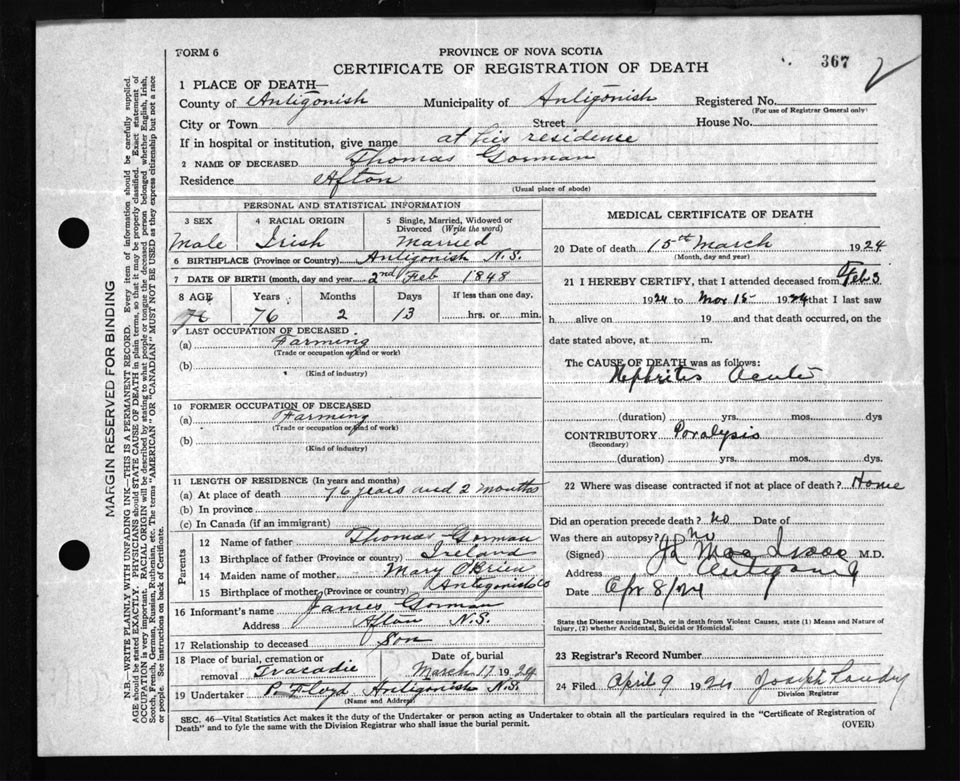 FORM 6
PROVINCE OF NOVA SCOTIA
367
CERTIFICATE OF REGISTRATION OF DEATH
1 PLACE OF DEATH—
County of Antigonish Municipality of Antigonish Registered No.
(For use of Registrar General only)
City or Town Street House No.
If in hospital or institution, give name at his residence
2 NAME OF DECEASED Thomas Gorman
Residence Afton
(Usual place of abode)
PERSONAL AND STATISTICAL INFORMATION
3 SEX 4 RACIAL ORIGIN 5 Single, Married, Widowed or Divorced (Write the word)
Male Irish Married
6 BIRTHPLACE (Province or Country) Antigonish N.S.
7 DATE OF BIRTH (month, day and year) 2nd Feb 1848
8 AGE Years Months Days If less than one day,
76 2 13 hrs. or min.
9 LAST OCCUPATION OF DECEASED
(a) Farming
(Trade or occupation or kind of work)
(b)
(Kind of industry)
10 FORMER OCCUPATION OF DECEASED
(a) Farming
(Trade or occupation or kind of work)
(b)
(Kind of industry)
11 LENGTH OF RESIDENCE (In years and months)
(a) At place of death 76 years and 2 months
(b) In province
(c) In Canada (if an immigrant)
Parents
12 Name of father Thomas Gorman
13 Birthplace of father (Province or country) Ireland
14 Maiden name of mother Mary O'Brien
15 Birthplace of mother (Province or country) Antigonish Co
16 Informant's name James Gorman
Address Afton N.S.
17 Relationship to deceased Son
18 Place of burial, cremation or removal Tracadie Date of burial March 17 1924
19 Undertaker P. Floyd Antigonish N.S.
(Name and Address)
MEDICAL CERTIFICATE OF DEATH
20 Date of death 15th March 1924
(Month, day and year)
21 I HEREBY CERTIFY, that I attended deceased from Feb 3
1924 to Mar 15 1924 that I last saw
h alive on 19 and that death occurred, on the
date stated above, at m.
The CAUSE OF DEATH was as follows:
Nephritis Acute
(duration) yrs. mos. dys
CONTRIBUTORY Paralysis
(Secondary)
(duration) yrs. mos. dys.
22 Where was disease contracted if not at place of death? Home
Did an operation precede death? no Date of
Was there an autopsy? no
(Signed) Mac Isaac M.D.
Address Antigonish
Date Apr 8/24
State the Disease causing Death, or in death from Violent Causes, state (1) Means and Nature of
Injury, (2) whether Accidental, Suicidal or Homicidal.
23 Registrar's Record Number
24 Filed April 9 1924 Joseph Landry
Division Registrar
SEC. 46—Vital Statistics Act makes it the duty of the Undertaker or person acting as Undertaker to obtain all the particulars required in the "Certificate of Registration of
Death" and to fyle the same with the Division Registrar who shall issue the burial permit.
(OVER)
MARGIN RESERVED FOR BINDING
N.B.—WRITE PLAINLY WITH UNFADING INK—THIS IS A PERMANENT RECORD. Every item of information should be carefully supplied.
AGE should be stated EXACTLY. PHYSICIANS should STATE CAUSE OF DEATH in plain terms, so that it may be properly classified. Exact statement of
OCCUPATION is very important. RACIAL ORIGIN will be described by stating to what people or tongue the deceased person belonged whether English, Irish,
Scotch, French, German, Russian, Ruthenian, etc. The terms "AMERICAN" OR "CANADIAN" MUST NOT BE USED as they express citizenship but not a race
or people. See instructions on back of Certificate.